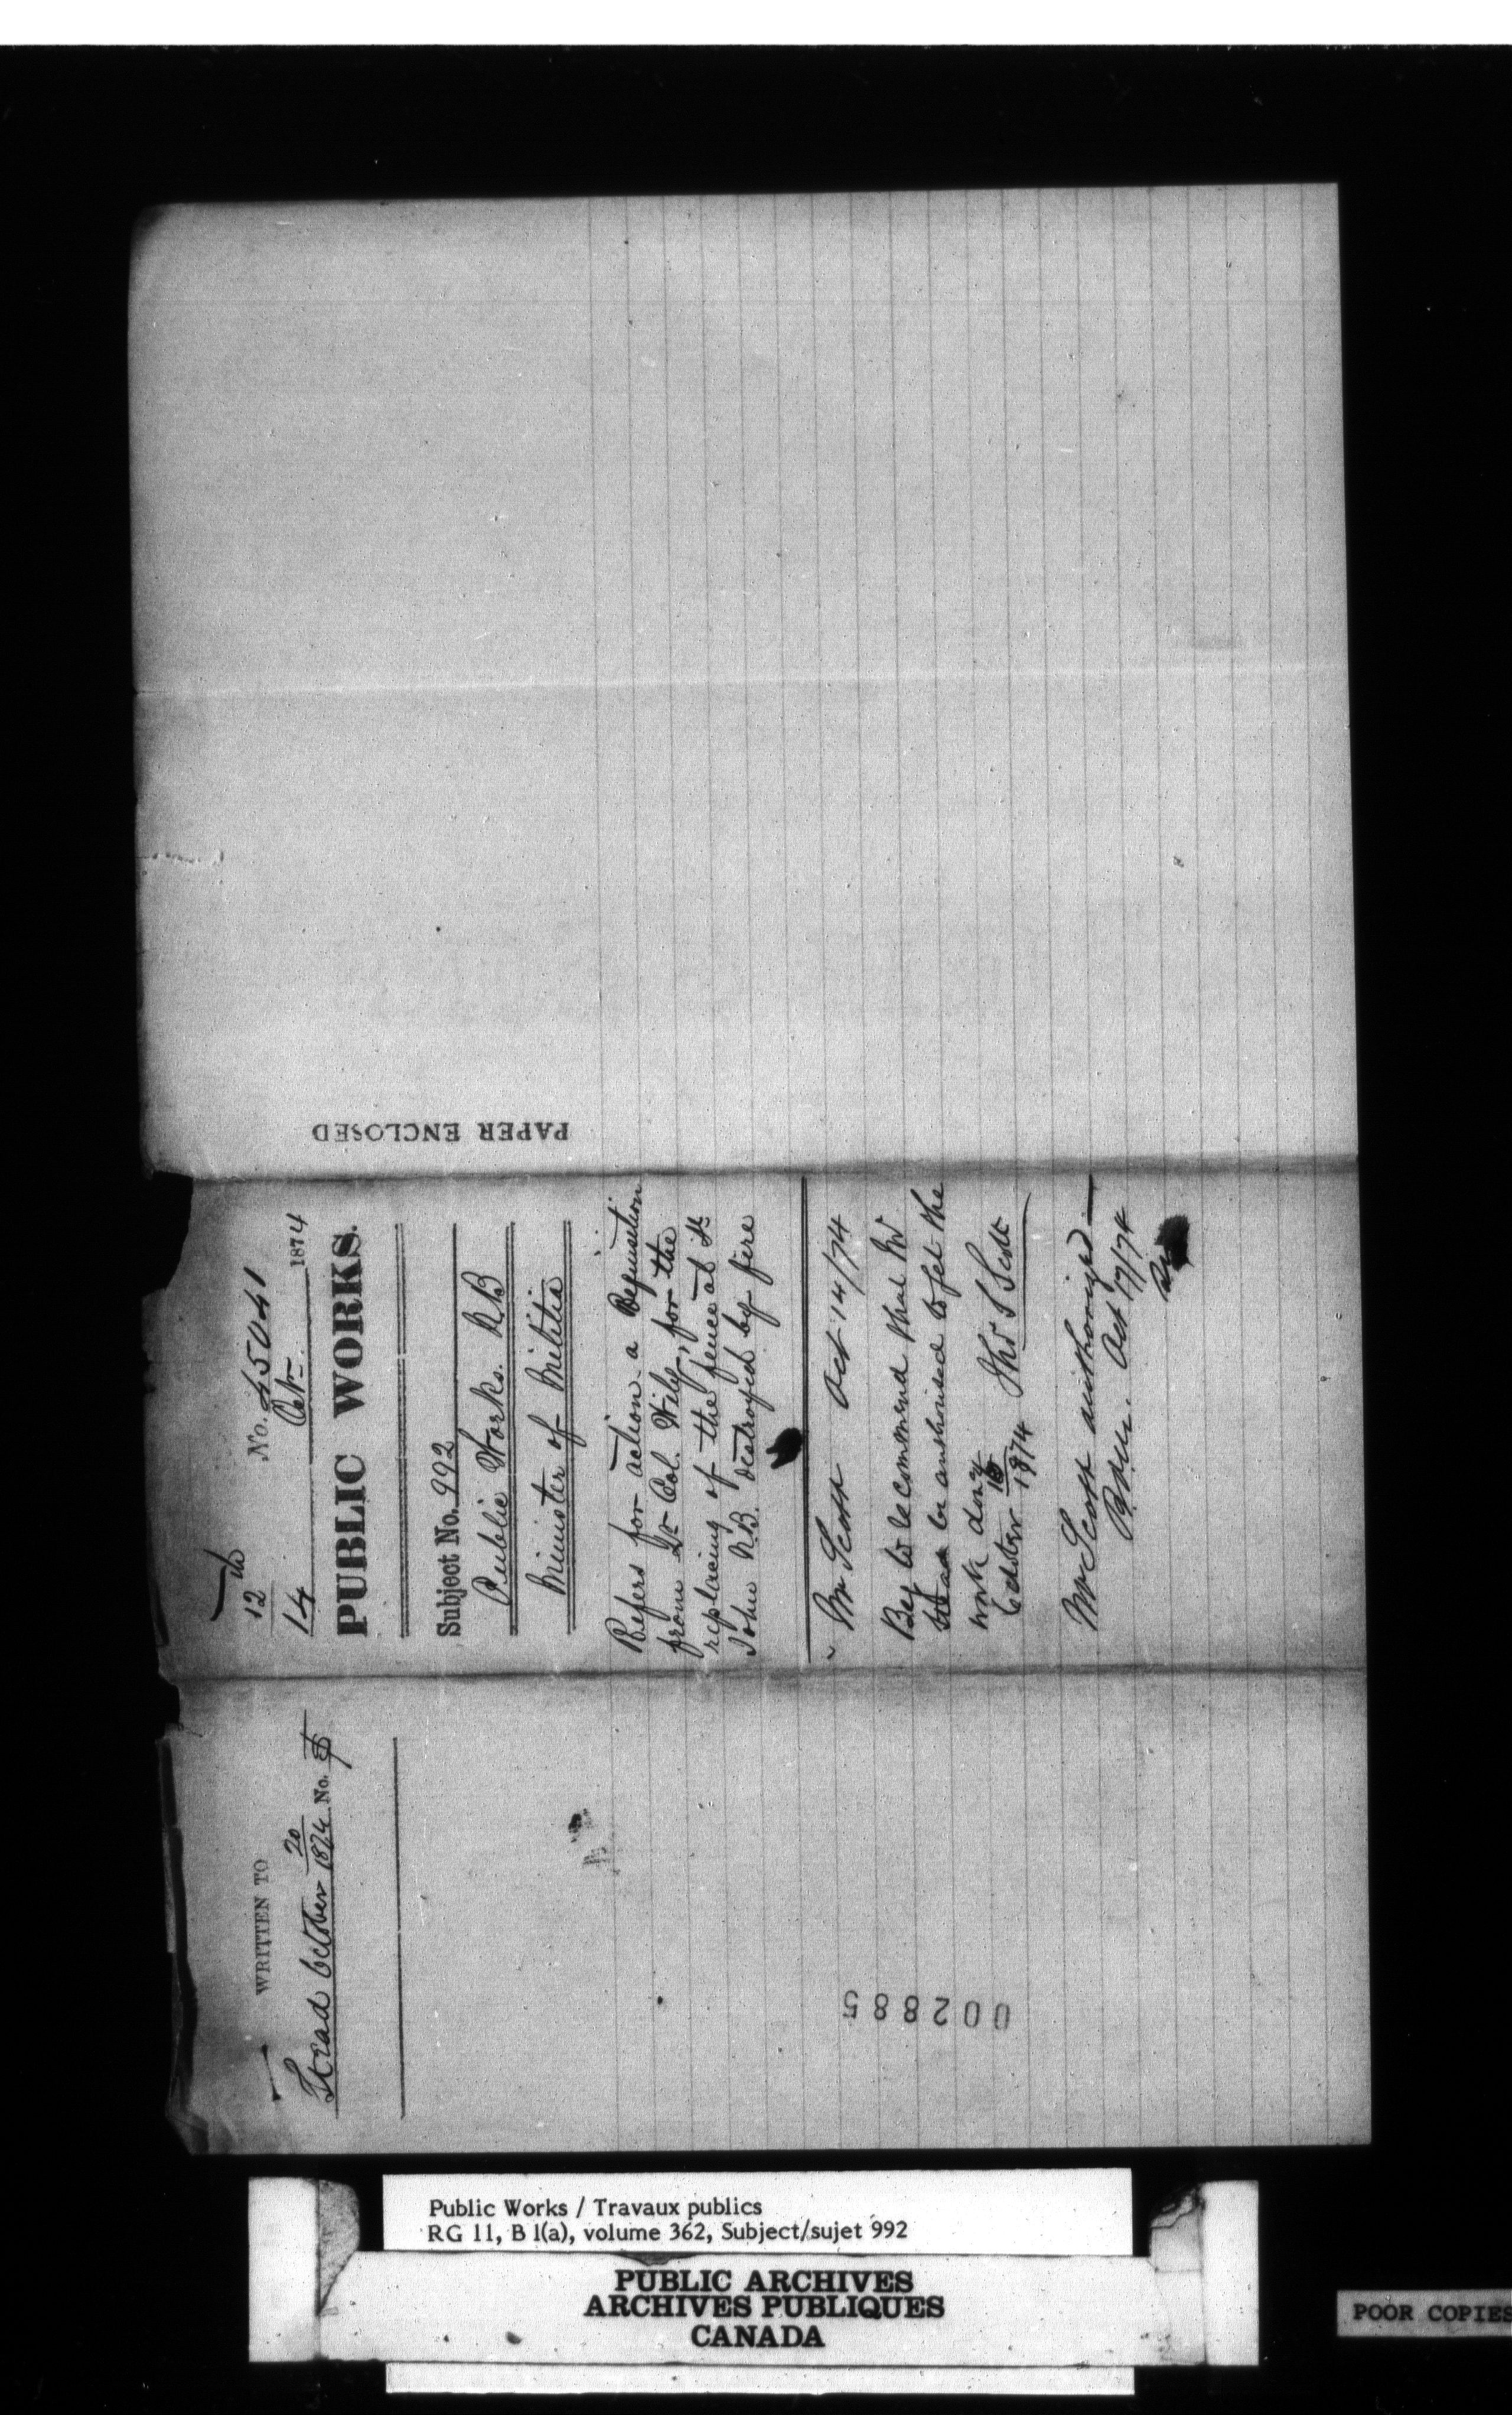 WRITTEN TO
Stead October 20 1874 No.
12th
14
No. 45041
Oct. 1874
PUBLIC WORKS.
Subject No. 992
Public Works. N.B
Minister of Militia
Refers for action a Requisition
from Lt Col. Wily, for the
replacing of the fence at St
John N.B. destroyed by fire
Mr Scott Oct 14/74
Beg to recommend that Mr
Stead be authorised to get the
work done
October 16 1874 Thos S Scott
Mr Scott authorized
Oct 17/74
PAPER ENCLOSED
002885
Public Works / Travaux publics
RG 11, B 1(a), volume 362, Subject/sujet 992
PUBLIC ARCHIVES
ARCHIVES PUBLIQUES
CANADA
POOR COPIES